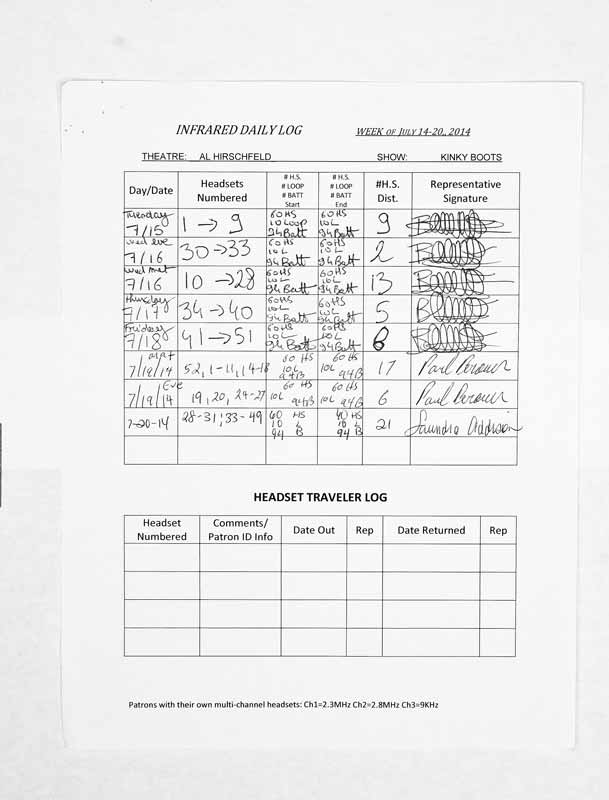 INFRARED DAILY LOG WEEK OF JULY 14-20, 2014
THEATRE: AL HIRSCHFELD SHOW: KINKY BOOTS
Day/Date Headsets Numbered # H.S. # LOOP # BATT Start # H.S. # LOOP # BATT End #H.S. Dist. Representative Signature
Tuesday 7/15 1 → 9 60 HS 10 LOOP 94 Batt 60 HS 10 L 94 Batt 9
Wed eve 7/16 30 → 33 60 HS 10 L 94 Batt 60 HS 10 L 94 Batt 2
Wed mat 7/16 10 → 28 60 HS 10 L 94 Batt 60 HS 10 L 94 Batt 13
Thursday 7/17 34 → 40 60 HS 10 L 94 Batt 60 HS 10 L 94 Batt 5
Friday 7/18 41 → 51 60 HS 10 L 94 Batt 60 HS 10 L 94 Batt
mat 7/19/14 52, 1-11, 14-18 60 HS 10 L 94 B 60 HS 10 L 94 B 17 Paul
Eve 7/19/14 19, 20, 24-27 60 HS 10 L 94 B 60 HS 10 L 94 B 6 Paul
7-20-14 28-31; 33-49 60 HS 10 L 94 B 60 HS 10 L 94 B 21 Saundra Addison
HEADSET TRAVELER LOG
Headset Numbered Comments/ Patron ID Info Date Out Rep Date Returned Rep
Patrons with their own multi-channel headsets: Ch1=2.3MHz Ch2=2.8MHz Ch3=9KHz